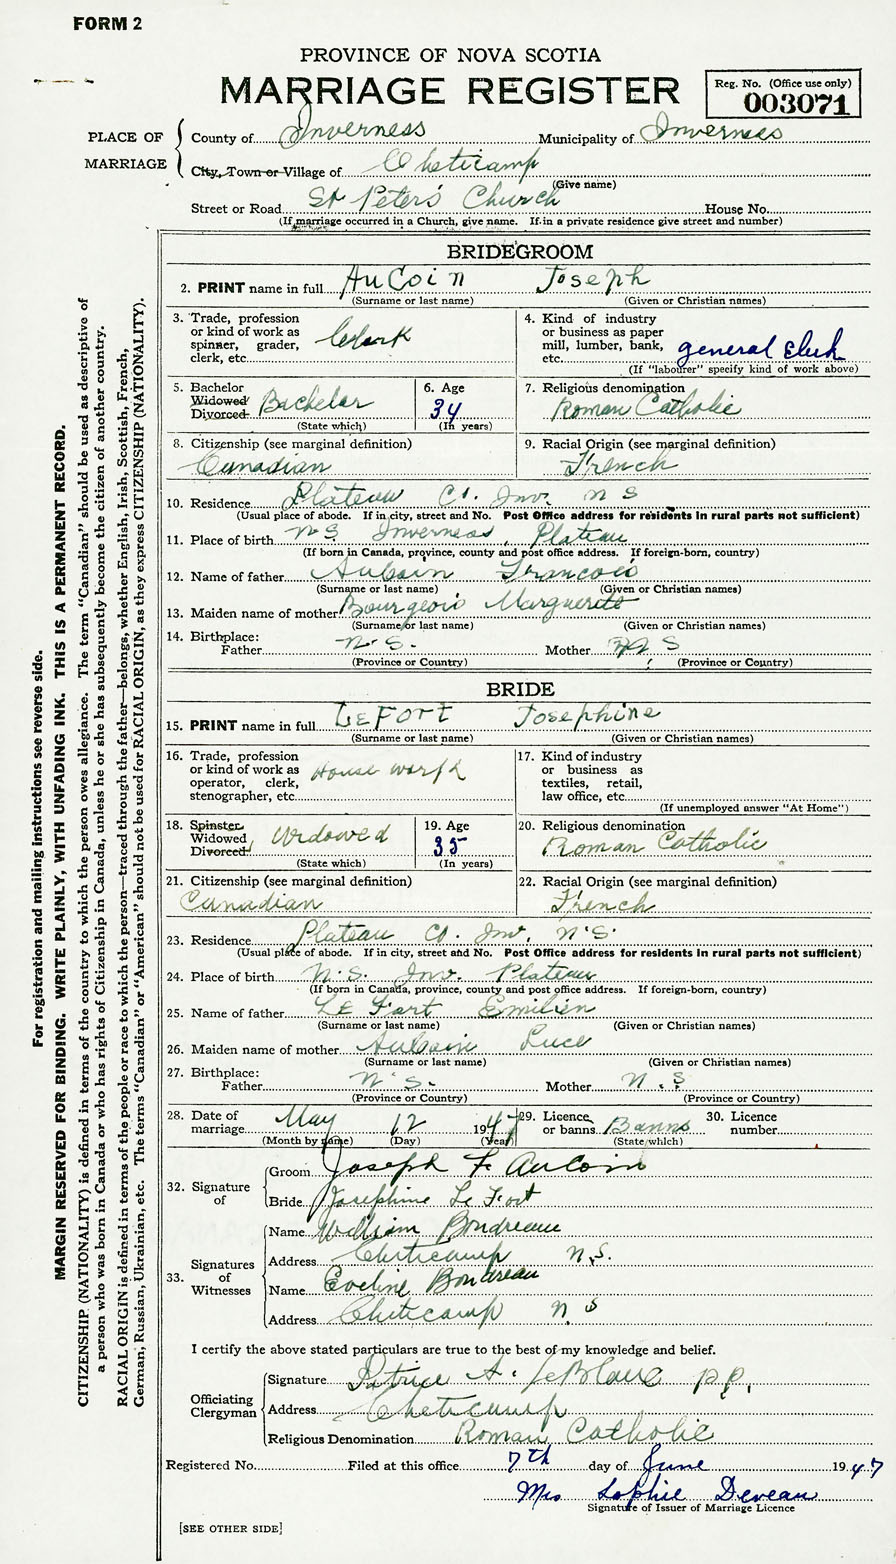 FORM 2
PROVINCE OF NOVA SCOTIA
MARRIAGE REGISTER
Reg. No. (Office use only)
003071
PLACE OF MARRIAGE
County of Inverness Municipality of Inverness
City, Town or Village of Cheticamp
(Give name)
Street or Road St Peter's Church House No.
(If marriage occurred in a Church, give name. If in a private residence give street and number)
BRIDEGROOM
2. PRINT name in full AuCoin Joseph
(Surname or last name) (Given or Christian names)
3. Trade, profession or kind of work as spinner, grader, clerk, etc. Clerk
4. Kind of industry or business as paper mill, lumber, bank, etc. general Clerk
(If "labourer" specify kind of work above)
5. Bachelor Widowed Divorced Bachelor
(State which)
6. Age 34
(In years)
7. Religious denomination Roman Catholic
8. Citizenship (see marginal definition) Canadian
9. Racial Origin (see marginal definition) French
10. Residence Plateau Co. Inv. N S
(Usual place of abode. If in city, street and No. Post Office address for residents in rural parts not sufficient)
11. Place of birth N S Inverness, Plateau
(If born in Canada, province, county and post office address. If foreign-born, country)
12. Name of father Aucoin Francois
(Surname or last name) (Given or Christian names)
13. Maiden name of mother Bourgeois Marguerite
(Surname or last name) (Given or Christian names)
14. Birthplace:
Father N. S. Mother N S
(Province or Country) (Province or Country)
BRIDE
15. PRINT name in full LeFort Josephine
(Surname or last name) (Given or Christian names)
16. Trade, profession or kind of work as operator, clerk, stenographer, etc. House work
17. Kind of industry or business as textiles, retail, law office, etc.
(If unemployed answer "At Home")
18. Spinster Widowed Divorced Widowed
(State which)
19. Age 35
(In years)
20. Religious denomination Roman Catholic
21. Citizenship (see marginal definition) Canadian
22. Racial Origin (see marginal definition) French
23. Residence Plateau Co. Inv. N.S.
(Usual place of abode. If in city, street and No. Post Office address for residents in rural parts not sufficient)
24. Place of birth N.S. Inv. Plateau
(If born in Canada, province, county and post office address. If foreign-born, country)
25. Name of father Le Fort Emilien
(Surname or last name) (Given or Christian names)
26. Maiden name of mother Aucoin Luce
(Surname or last name) (Given or Christian names)
27. Birthplace:
Father N.S. Mother N.S
(Province or Country) (Province or Country)
28. Date of marriage May 12 1947
(Month by name) (Day) (Year)
29. Licence or banns Banns
(State which)
30. Licence number
32. Signature of
Groom Joseph F AuCoin
Bride Josephine Le Fort
33. Signatures of Witnesses
Name William Boudreau
Address Cheticamp N.S.
Name Eveline Boudreau
Address Cheticamp N. S
I certify the above stated particulars are true to the best of my knowledge and belief.
Officiating Clergyman
Signature Patrice A. LeBlanc p.p.
Address Cheticamp
Religious Denomination Roman Catholic
Registered No. Filed at this office 7th day of June 1947
Mrs Sophie Deveau
Signature of Issuer of Marriage Licence
[SEE OTHER SIDE]
For registration and mailing instructions see reverse side.
MARGIN RESERVED FOR BINDING. WRITE PLAINLY, WITH UNFADING INK. THIS IS A PERMANENT RECORD.
CITIZENSHIP (NATIONALITY) is defined in terms of the country to which the person owes allegiance. The term "Canadian" should be used as descriptive of
a person who was born in Canada or who has rights of Citizenship in Canada, unless he or she has subsequently become the citizen of another country.
RACIAL ORIGIN is defined in terms of the people or race to which the person—traced through the father—belongs, whether English, Irish, Scottish, French,
German, Russian, Ukrainian, etc. The terms "Canadian" or "American" should not be used for RACIAL ORIGIN, as they express CITIZENSHIP (NATIONALITY).